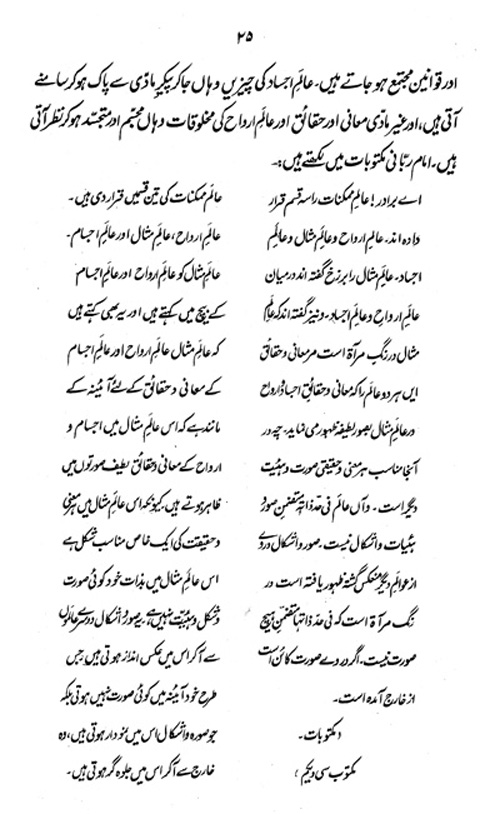 ۲۵
اور قوانین مجتمع ہو جاتے ہیں۔ عالمِ اجساد کی چیزیں وہاں جا کر پیکرِ مادّی سے پاک ہو کر سامنے
آتی ہیں، اور غیر مادّی معانی اور حقائق اور عالمِ ارواح کی مخلوقات وہاں مجسّم اور متجسّد ہو کر نظر آتی
ہیں۔ امام ربّانی مکتوبات میں لکھتے ہیں:۔
اے برادر! عالمِ ممکنات را سہ قسم قرار
دادہ اند۔ عالمِ ارواح و عالمِ مثال و عالمِ
اجساد۔ عالمِ مثال را برزخ گفتہ اند درمیان
عالمِ ارواح و عالمِ اجساد۔ و نیز گفتہ اند کہ عالم
مثال در رنگ مرآة است مر معانی و حقائق
ایں ہر دو عالم را کہ معانی و حقائقِ اجساد و ارواح
در عالمِ مثال بصور لطیفہ ظہور می نماید۔ چہ در
آنجا مناسب ہر معنی و حقیقتی صورت و ہیئیت
دیگر است۔ و آں عالم فی حدّ ذاتہ متضمن صور و
ہئیات و اشکال نیست۔ صور و اشکال در وے
از عوالم دیگر منعکس گشتہ ظہور یافتہ است در
رنگ مرآة است کہ فی حدّ ذاتہا متضمّن ہیچ
صورت نیست۔ اگر در وے صورت کائن است
از خارج آمدہ است۔
مکتوبات۔
مکتوب سی و یکم؛
عالم ممکنات کی تین قسمیں قرار دی ہیں۔
عالمِ ارواح، عالمِ مثال اور عالمِ اجسام۔
عالمِ مثال کو عالمِ ارواح اور عالمِ اجسام
کے بیچ میں کہتے ہیں اور یہ بھی کہتے ہیں
کہ عالمِ مثال عالمِ ارواح اور عالمِ اجسام
کے معانی و حقائق کے لئے آئینہ کے
مانند ہے کہ اس عالمِ مثال میں اجسام و
ارواح کے معانی و حقائق لطیف صورتوں میں
ظاہر ہوتے ہیں۔ کیونکہ اس عالمِ مثال میں ہر معنی
و حقیقت کی ایک خاص مناسب شکل ہے
اس عالمِ مثال میں بذات خود کوئی صورت
و شکل و ہیئیت نہیں ہے۔ یہ صور و اشکال دوسرے عالموں
سے آ کر اس میں عکس انداز ہوتی ہیں جس
طرح خود آئینہ میں کوئی صورت نہیں ہوتی بلکہ
جو صورہ و اشکال اس میں نمودار ہوتی ہیں، وہ
خارج سے آ کر اس میں جلوہ گر ہوتی ہیں۔